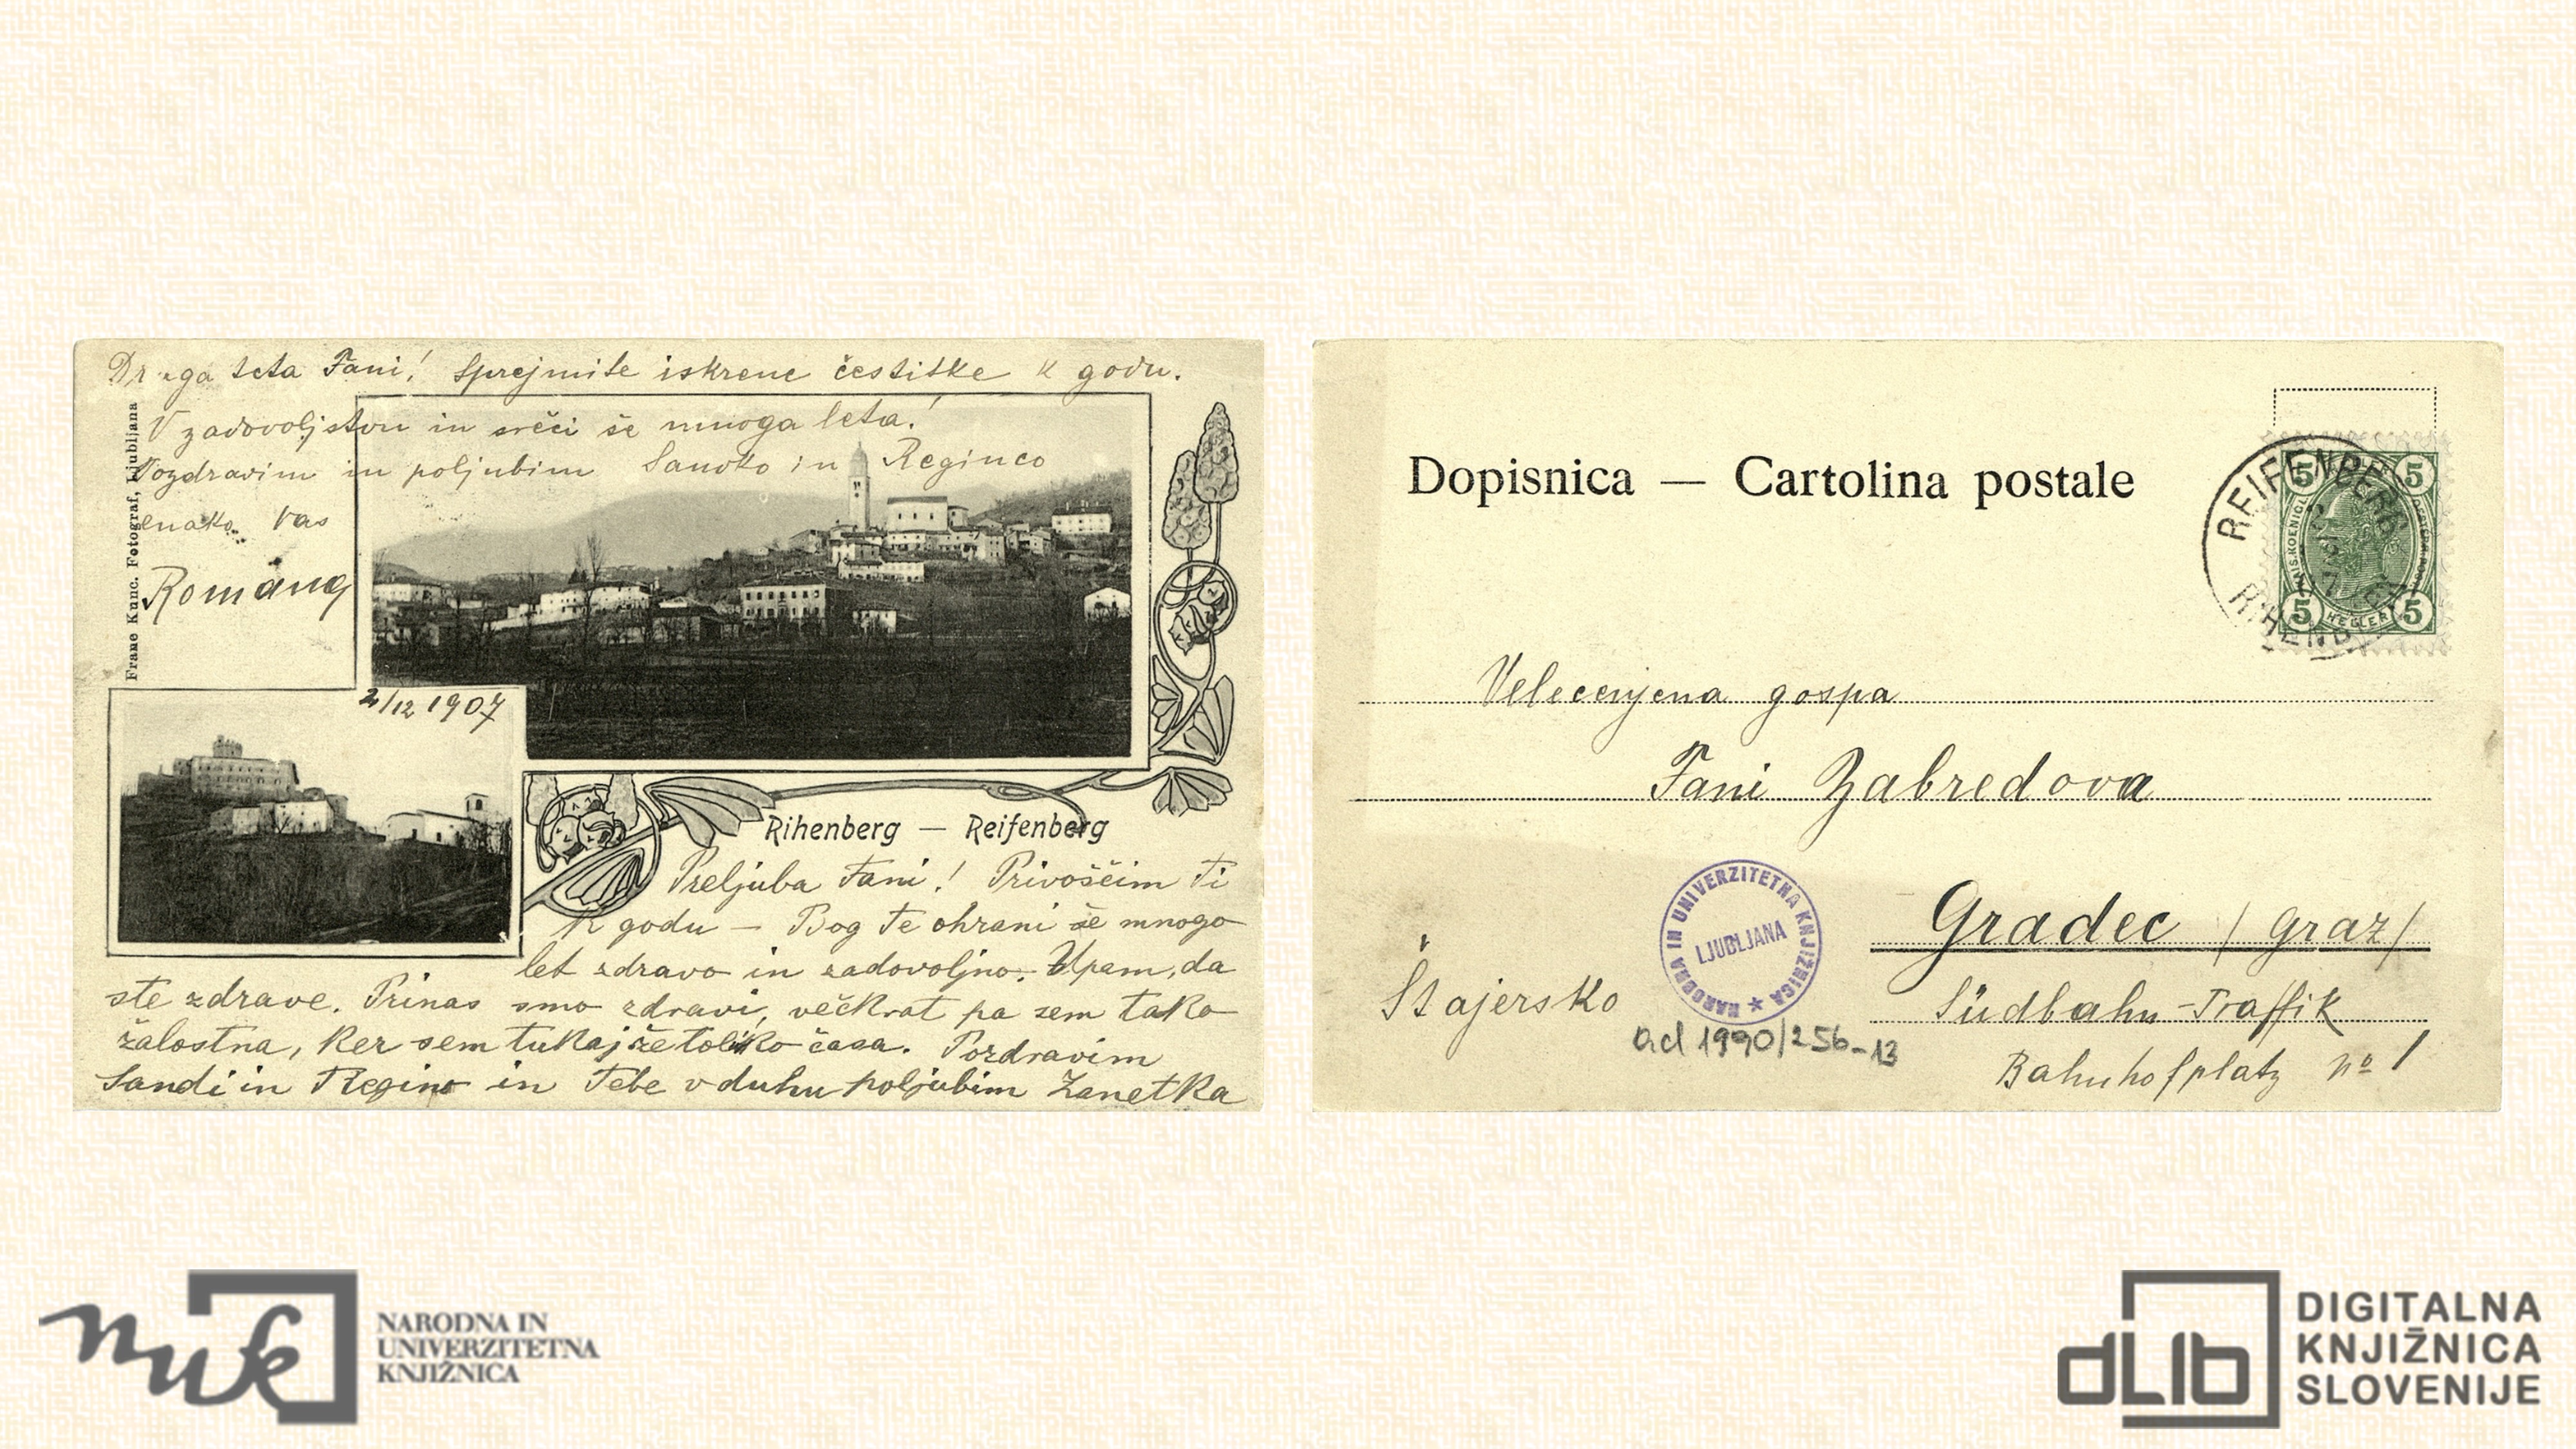 Draga teta Fani! Sprejmite iskrene čestitke k godu.
V zadovoljstvu in sreči še mnoga leta!
Pozdravim in poljubim Sandko in Reginco
enako Vas
Romana
Frane Kunc. Fotograf, Ljubljana
2/12 1907
Rihenberg — Reifenberg
Preljuba Fani! Privoščim Ti
k godu – Bog Te ohrani še mnogo
let zdravo in zadovoljno. Upam, da
ste zdrave. Prinas smo zdravi, večkrat pa sem tako
žalostna, ker sem tukaj že toliko časa. Pozdravim
Sandi in Regino in Tebe v duhu poljubim Žanetka
Dopisnica — Cartolina postale
REIFENBERG
RIHENB
5 5
5 HELLER 5
Velecenjena gospa
Fani Zabredova
Gradec /Graz/
Štajersko
Südbahn-Traffik
Bahnhofplatz no 1
NARODNA IN UNIVERZITETNA KNJIŽNICA
LJUBLJANA
ad 1990/256-13
nuk
NARODNA IN
UNIVERZITETNA
KNJIŽNICA
dLib
DIGITALNA
KNJIŽNICA
SLOVENIJE